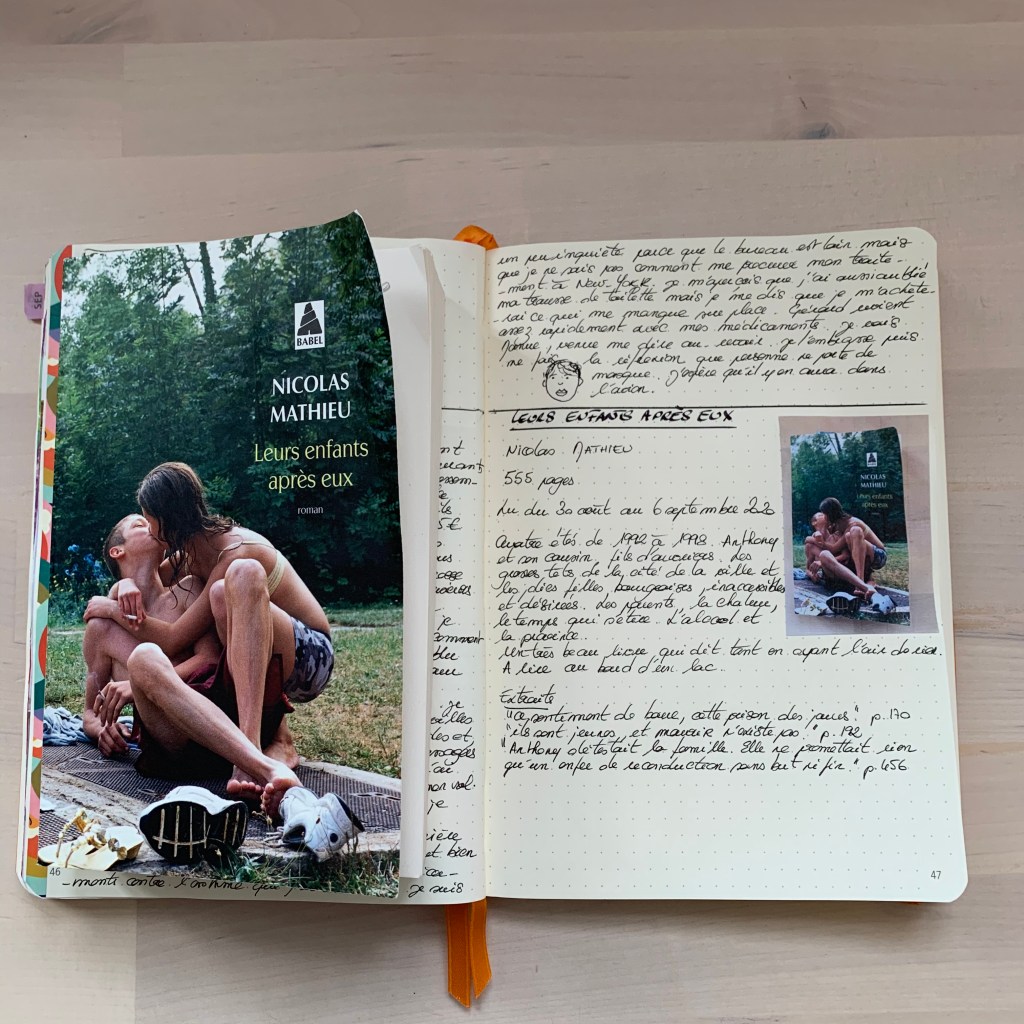 SEP
BABEL
NICOLAS
MATHIEU
Leurs enfants
après eux
roman
46
-ment contre l'homme qui
je suis
un peu inquiète parce que le bureau est loin mais
que je ne sais pas comment me procurer mon traite-
-ment à New-York. Je m'aperçois que j'ai aussi oublié
ma trousse de toilette mais je me dis que je m'achète-
-rai ce qui me manque sur place. Gérard revient
assez rapidement avec mes médicaments. Je vois
venue me dire au-revoir. Je l'embrasse puis
me fais la réflexion que personne ne porte de
masque. J'espère qu'il y en aura dans
l'avion.
LEURS ENFANTS APRÈS EUX
NICOLAS MATHIEU
555 pages
Lu du 30 août au 6 septembre 2020
Quatre étés de 1992 à 1998. Anthony
et son cousin, fils d'ouvriers. Les
grosses têts de la cité de la ville et
les jolies filles bourgeoises, inaccessibles
et désirées. Les parents, la chaleur,
le temps qui s'étire. L'alcool et
la province...
Un très beau livre qui dit tant en ayant l'air de rien.
A lire au bord d'un lac..
Extraits
"Ce sentiment de boue, cette prison des jours." p.170
"ils sont jeunes et mourir n'existe pas." p.192
"Anthony détestait la famille. Elle ne promettait rien
qu'un enfer de reconduction sans but ni fin." p.456
NICOLAS
MATHIEU
Leurs enfants
après eux
47